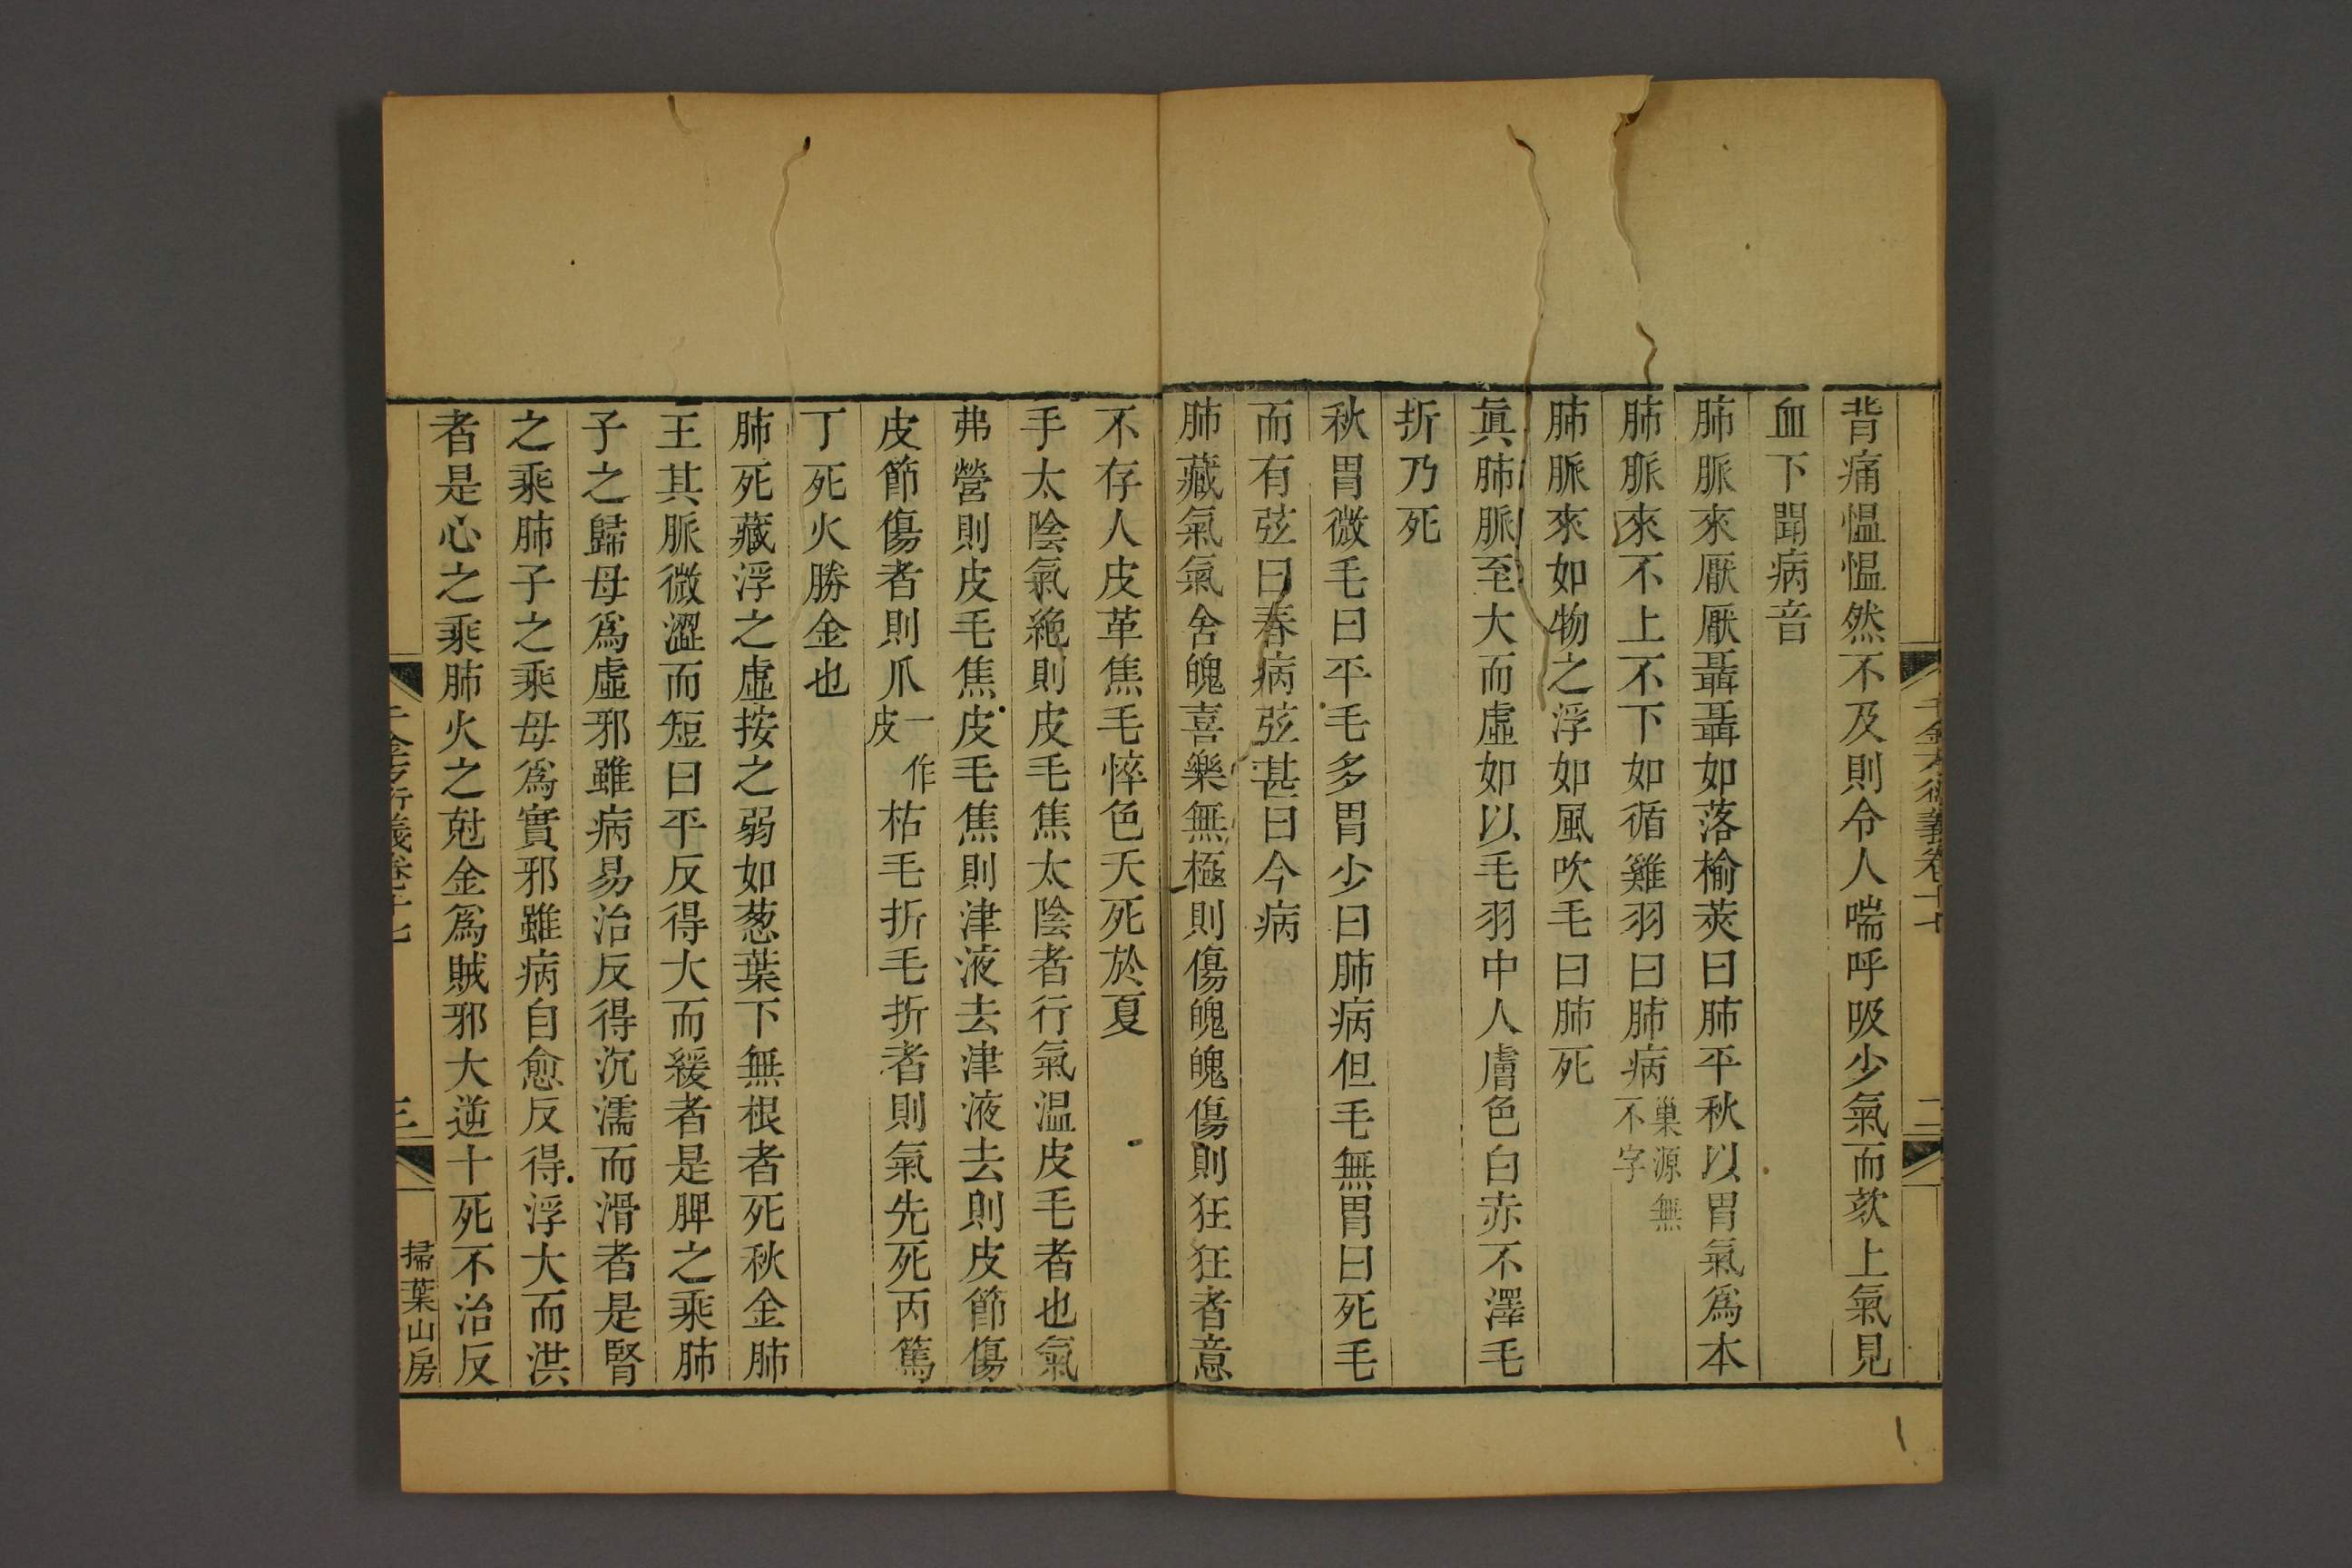 千金方衍義卷十七
二
背痛慍慍然不及則令人喘呼吸少氣而欬上氣見
血下聞病音
肺脈來厭厭聶聶如落榆莢曰肺平秋以胃氣爲本
肺脈來不上不下如循雞羽曰肺病巢源無不字
肺脈來如物之浮如風吹毛曰肺死
眞肺脈至大而虛如以毛羽中人膚色白赤不澤毛
折乃死
秋胃微毛曰平毛多胃少曰肺病但毛無胃曰死毛
而有弦曰春病弦甚曰今病
肺藏氣氣舍魄喜樂無極則傷魄魄傷則狂狂者意
不存人皮革焦毛悴色夭死於夏
手太陰氣絶則皮毛焦太陰者行氣温皮毛者也氣
弗營則皮毛焦皮毛焦則津液去津液去則皮節傷
皮節傷者則爪一作皮枯毛折毛折者則氣先死丙篤
丁死火勝金也
肺死藏浮之虛按之弱如葱葉下無根者死秋金肺
王其脈微澀而短曰平反得大而緩者是脾之乘肺
子之歸母爲虛邪雖病易治反得沉濡而滑者是腎
之乘肺子之乘母爲實邪雖病自愈反得浮大而洪
者是心之乘肺火之尅金爲賊邪大逆十死不治反
千金方衍義卷十七
三
掃葉山房